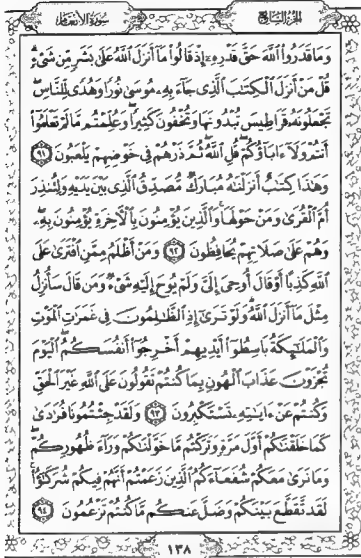 الجزء السابع
سورة الأنعام
وَمَا قَدَرُوا۟ ٱللَّهَ حَقَّ قَدْرِهِۦٓ إِذْ قَالُوا۟ مَآ أَنزَلَ ٱللَّهُ عَلَىٰ بَشَرٍ مِّن شَىْءٍ ۗ
قُلْ مَنْ أَنزَلَ ٱلْكِتَٰبَ ٱلَّذِى جَآءَ بِهِۦ مُوسَىٰ نُورًا وَهُدًى لِّلنَّاسِ ۖ
تَجْعَلُونَهُۥ قَرَاطِيسَ تُبْدُونَهَا وَتُخْفُونَ كَثِيرًا ۖ وَعُلِّمْتُم مَّا لَمْ تَعْلَمُوٓا۟
أَنتُمْ وَلَآ ءَابَآؤُكُمْ ۖ قُلِ ٱللَّهُ ۖ ثُمَّ ذَرْهُمْ فِى خَوْضِهِمْ يَلْعَبُونَ ٩١
وَهَٰذَا كِتَٰبٌ أَنزَلْنَٰهُ مُبَارَكٌ مُّصَدِّقُ ٱلَّذِى بَيْنَ يَدَيْهِ وَلِتُنذِرَ
أُمَّ ٱلْقُرَىٰ وَمَنْ حَوْلَهَا ۚ وَٱلَّذِينَ يُؤْمِنُونَ بِٱلْءَاخِرَةِ يُؤْمِنُونَ بِهِۦ ۖ
وَهُمْ عَلَىٰ صَلَاتِهِمْ يُحَافِظُونَ ٩٢ وَمَنْ أَظْلَمُ مِمَّنِ ٱفْتَرَىٰ عَلَى
ٱللَّهِ كَذِبًا أَوْ قَالَ أُوحِىَ إِلَىَّ وَلَمْ يُوحَ إِلَيْهِ شَىْءٌ وَمَن قَالَ سَأُنزِلُ
مِثْلَ مَآ أَنزَلَ ٱللَّهُ ۗ وَلَوْ تَرَىٰٓ إِذِ ٱلظَّٰلِمُونَ فِى غَمَرَٰتِ ٱلْمَوْتِ
وَٱلْمَلَٰٓئِكَةُ بَاسِطُوٓا۟ أَيْدِيهِمْ أَخْرِجُوٓا۟ أَنفُسَكُمُ ۖ ٱلْيَوْمَ
تُجْزَوْنَ عَذَابَ ٱلْهُونِ بِمَا كُنتُمْ تَقُولُونَ عَلَى ٱللَّهِ غَيْرَ ٱلْحَقِّ
وَكُنتُمْ عَنْ ءَايَٰتِهِۦ تَسْتَكْبِرُونَ ٩٣ وَلَقَدْ جِئْتُمُونَا فُرَٰدَىٰ
كَمَا خَلَقْنَٰكُمْ أَوَّلَ مَرَّةٍ وَتَرَكْتُم مَّا خَوَّلْنَٰكُمْ وَرَآءَ ظُهُورِكُمْ ۖ
وَمَا نَرَىٰ مَعَكُمْ شُفَعَآءَكُمُ ٱلَّذِينَ زَعَمْتُمْ أَنَّهُمْ فِيكُمْ شُرَكَٰٓؤُا۟ ۚ
لَقَد تَّقَطَّعَ بَيْنَكُمْ وَضَلَّ عَنكُم مَّا كُنتُمْ تَزْعُمُونَ ٩٤
١٣٨